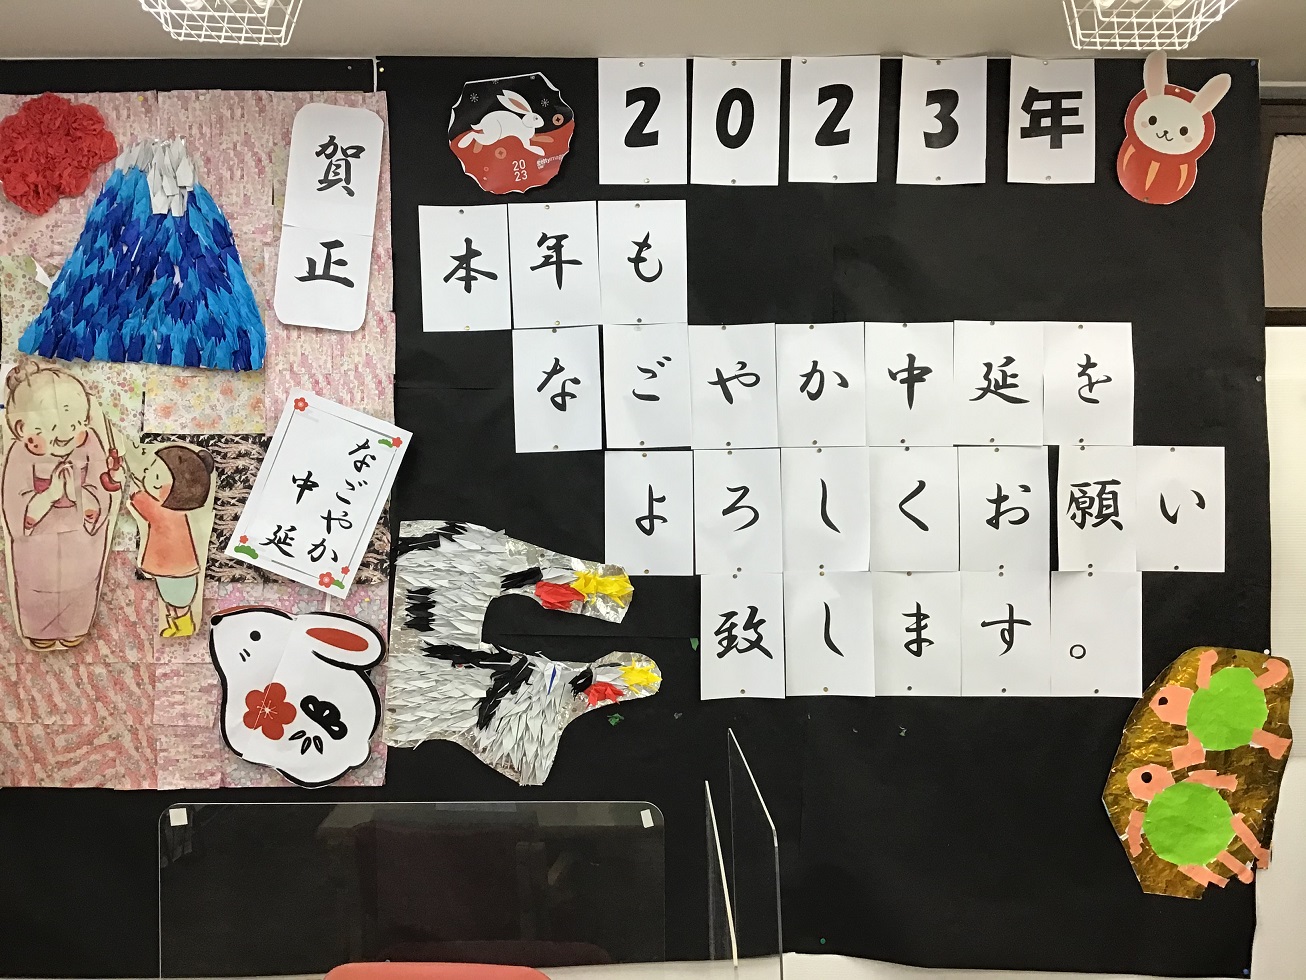 2023年
本年も
なごやか中延を
よろしくお願い
致します。
賀正
なごやか
中延
20
23